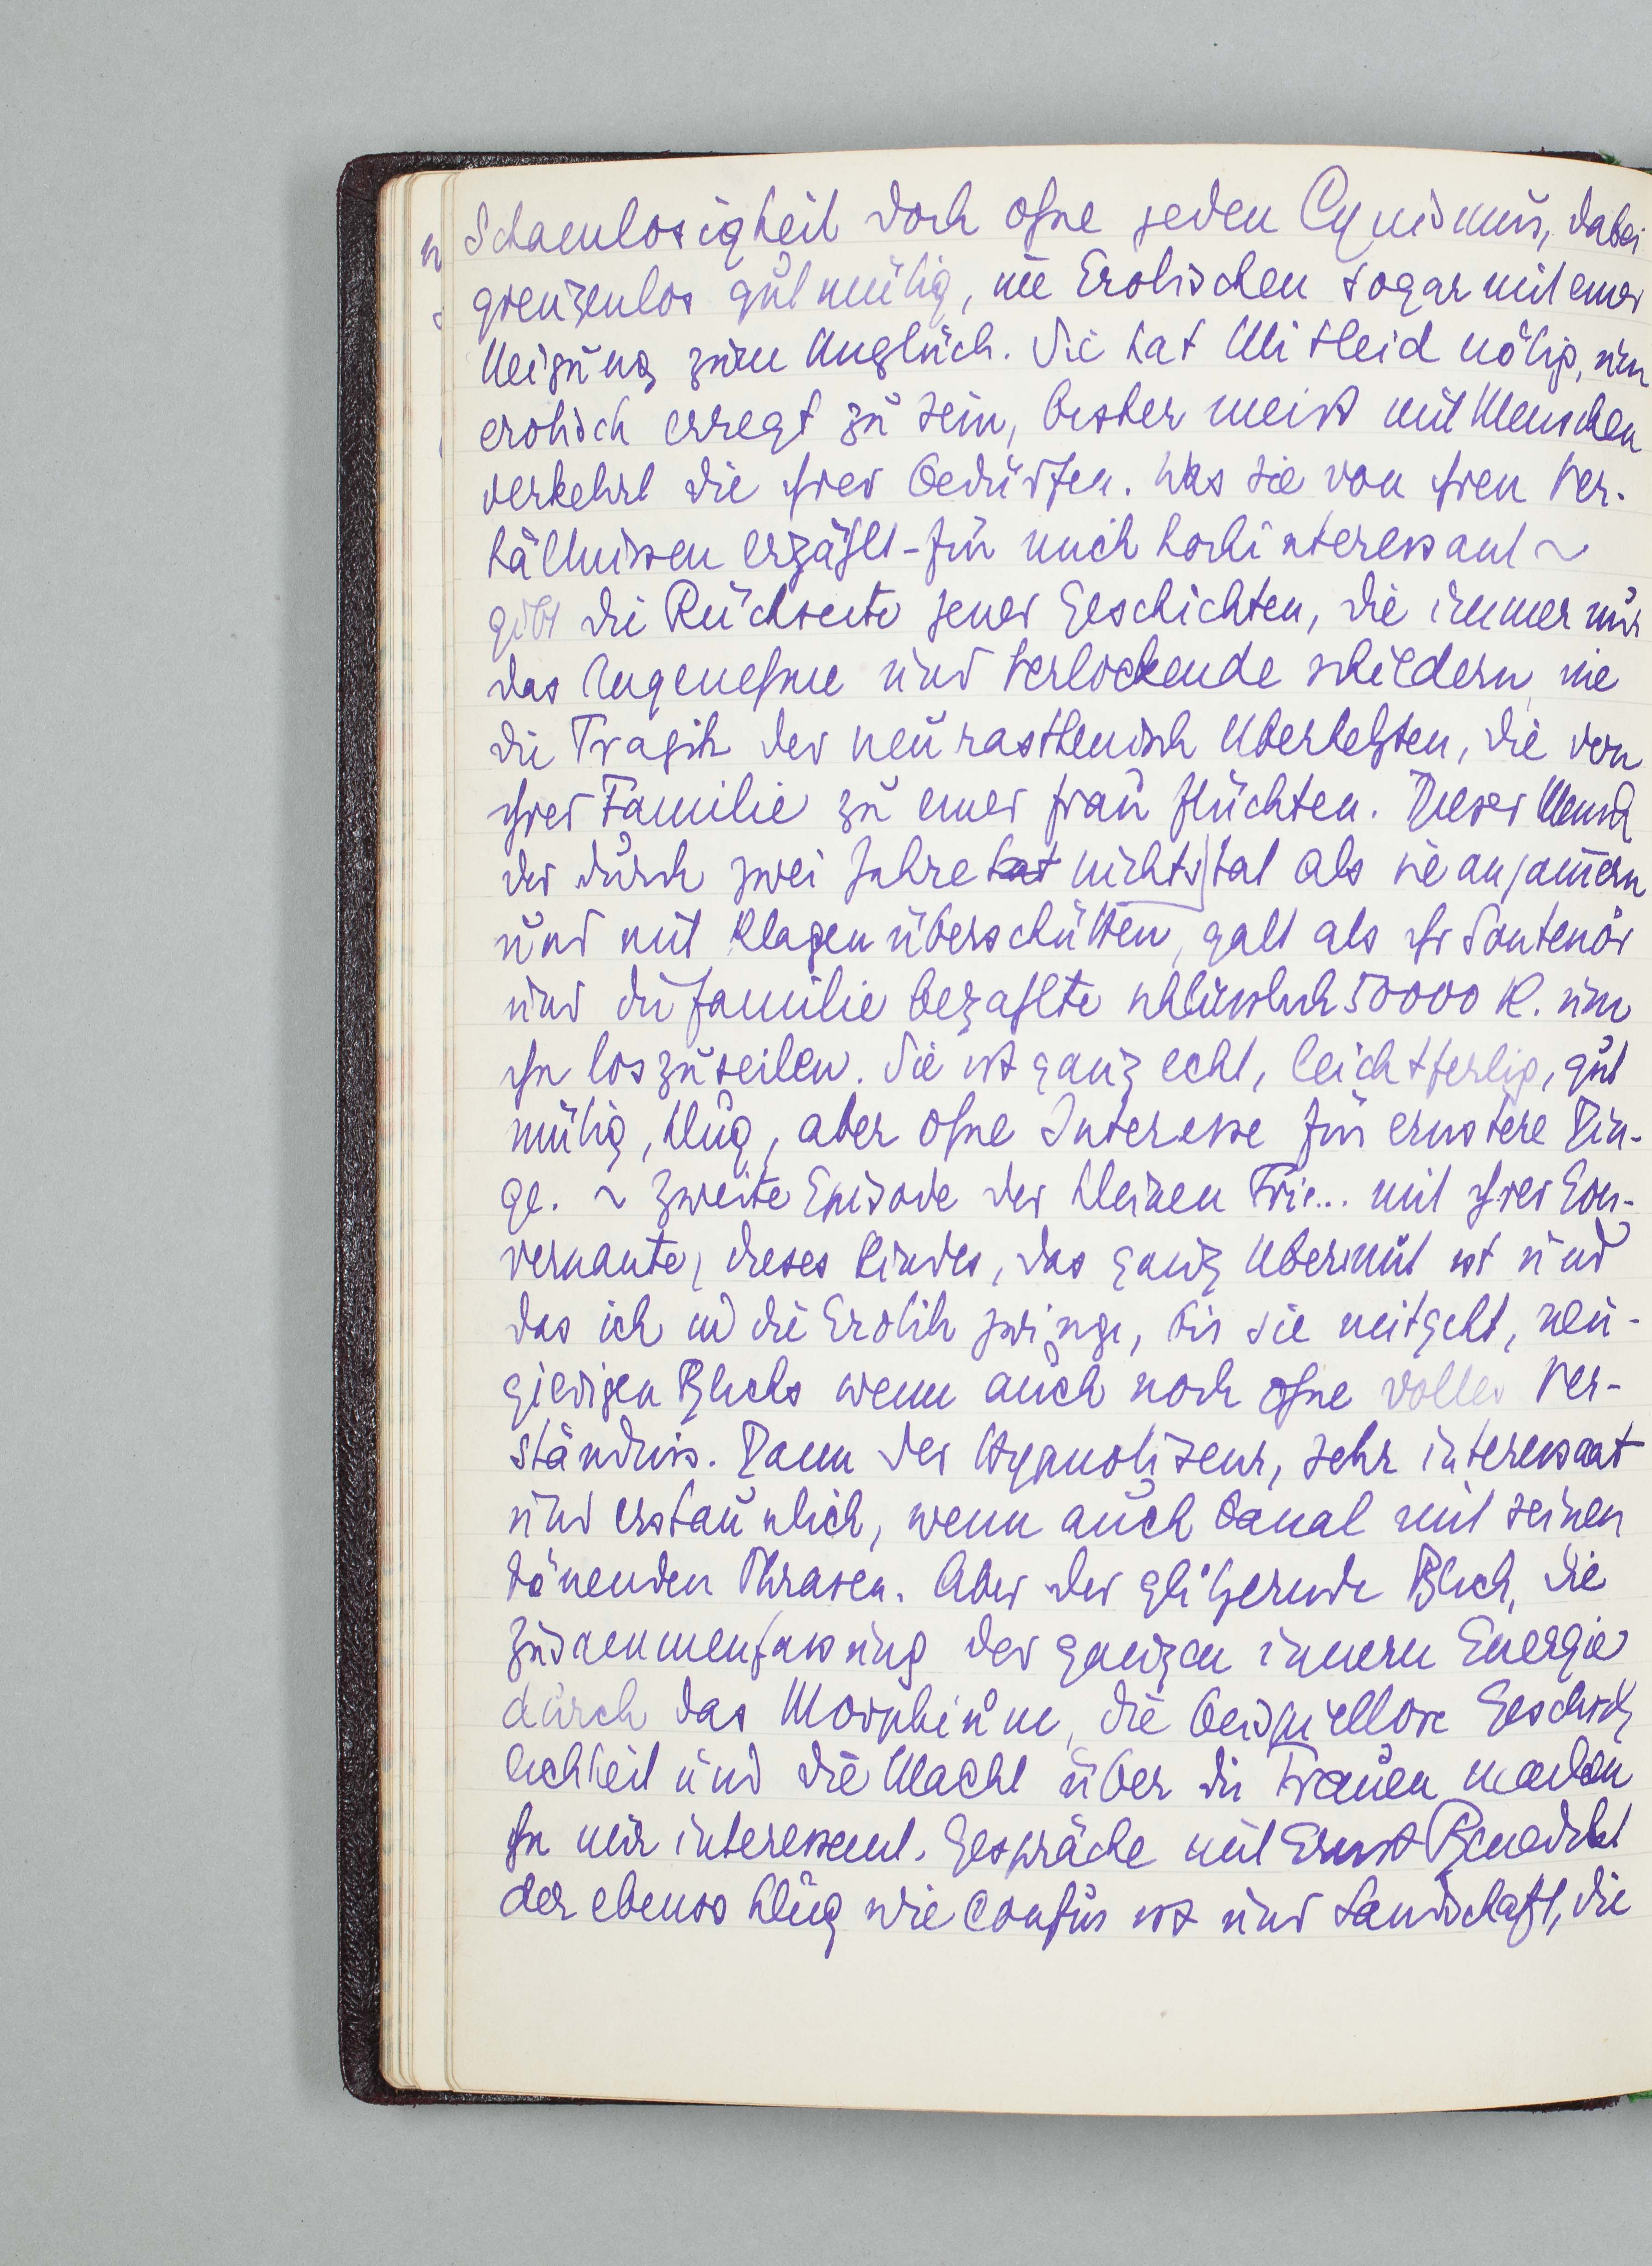 Schamlosigkeit doch ohne jeden Cynismus, dabei
grenzenlos gutmütig, im Erotischen sogar mit einer
Neigung zum Unglück. Sie hat Mitleid nötig, um
erotisch erregt zu sein, bisher meist mit Menschen
verkehrt die ihrer bedürfen. Was sie von ihren Ver-
hältnissen erzählt - für mich hochinteressant ~
gibt die Rückseite jener Geschichten, die immer nur
das Angenehme und Verlockende schildern, nie
die Tragik der neurasthenisch Überhetzten, die von
ihrer Familie zu einer Frau flüchten. Dieser Mensch
der durch zwei Jahre hat nichts tat als sie anjammern
und mit Klagen überschütten, galt als ihr Soutenör
und die Familie bezahlte schliesslich 50000 K. um
ihn loszueilen. Sie ist ganz echt, leichtfertig, gut
mütig, klug, aber ohne Interesse für ernstere Din-
ge. ~ Zweite Episode der kleinen Trie... mit ihrer Gou-
vernante, dieses Kindes, das ganz Übermut ist und
das ich in die Erotik zwinge, bis sie mitgeht, neu-
gierigen Blicks wenn auch noch ohne volles Ver-
ständnis. Dann der Hypnotiseur, sehr interessant
und erstaunlich, wenn auch banal mit seinen
tönenden Phrasen. Aber der glitzernde Blick, die
Zusammenfassung der ganzen innern Energie
durch das Morphium, die beispiellose Geschick
lichkeit und die Macht über die Frauen machen
ihn mir interessant. Gespräche mit Ernst Benedikt
der ebenso klug wie confus ist und Landschaft, die